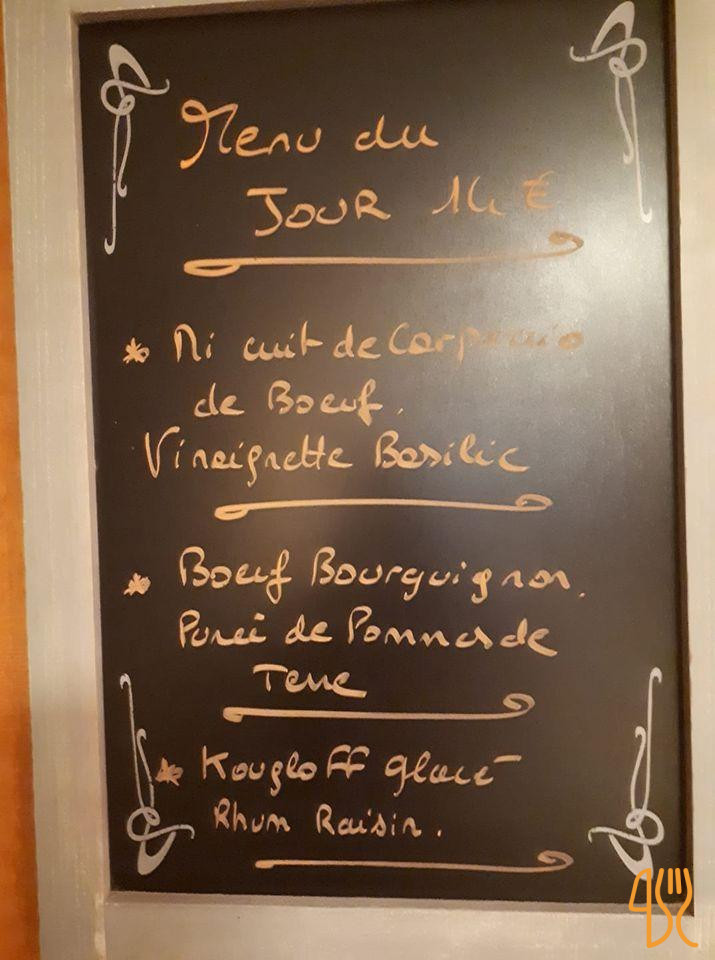 Menu du
JOUR 14 €
* Mi cuit de Carpaccio
de Boeuf.
Vinaigrette Basilic
* Boeuf Bourguignon.
Pureé de Pommes de
Terre
* Kougloff glacé
Rhum Raisin.